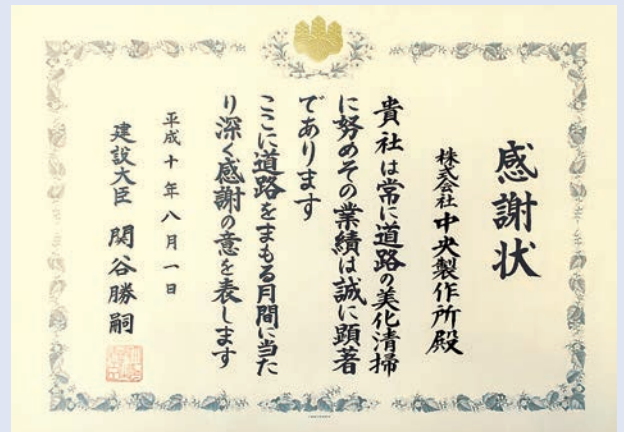 感謝状
株式会社中央製作所殿
貴社は常に道路の美化清掃
に努めその業績は誠に顕著
であります
ここに道路をまもる月間に当た
り深く感謝の意を表します
平成十年八月一日
建設大臣 関谷勝嗣